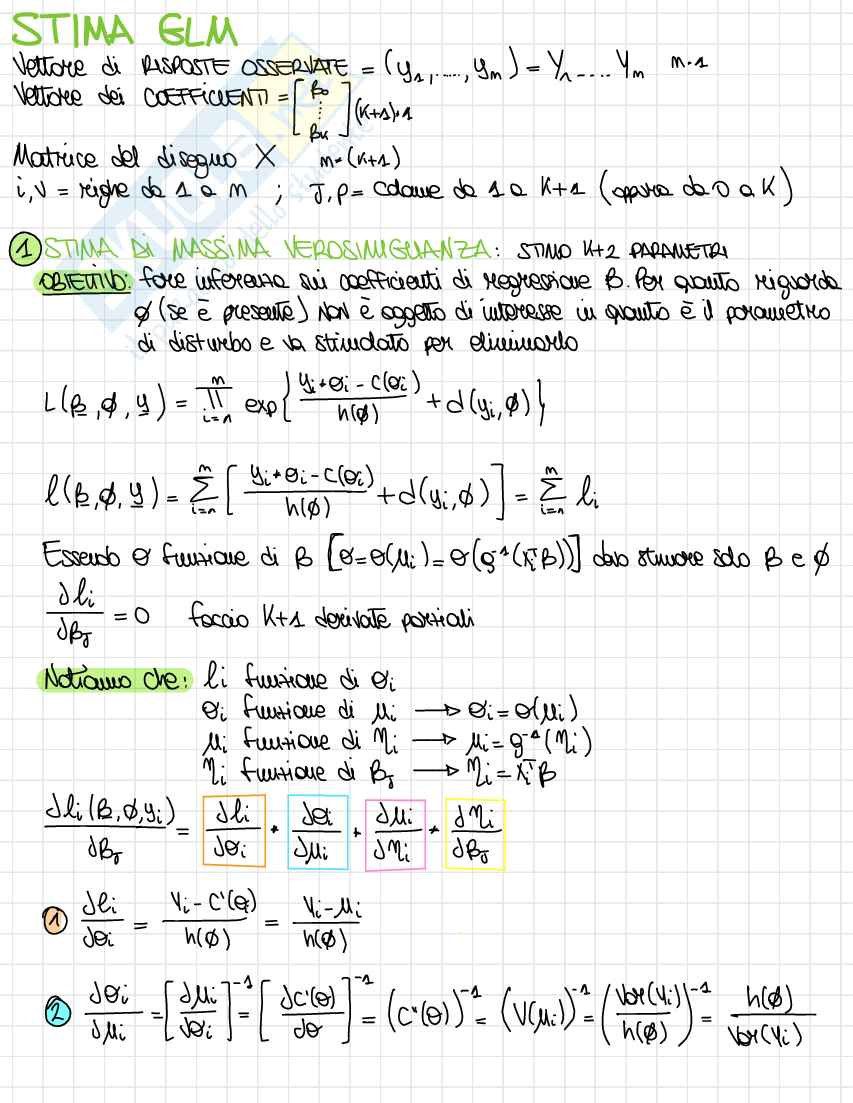 STIMA GLM
Vettore di RISPOSTE OSSERVATE = (y₁,....,yₘ) = Y₁....Yₘ m·1
Vettore dei COEFFICIENTI = [β₀ ⋮ βₖ] (K+1)·1
Matrice del disegno X m·(K+1)
i,v = righe da 1 a m ; J,p = colonne da 1 a K+1 (oppure da 0 a K)
① STIMA DI MASSIMA VEROSIMIGLIANZA: STIMO K+2 PARAMETRI
OBIETTIVO: fare inferenza sui coefficienti di regressione β. Per quanto riguarda
φ (se è presente) NON è oggetto di interesse in quanto è il parametro
di disturbo e va stimolato per eliminarlo
L(β,φ,y) = ∏ᵢ₌₁ᵐ exp{ (yᵢ*θᵢ - c(θᵢ))/h(φ) + d(yᵢ,φ) }
l(β,φ,y) = ∑ᵢ₌₁ᵐ [ (yᵢ*θᵢ - c(θᵢ))/h(φ) + d(yᵢ,φ) ] = ∑ᵢ₌₁ᵐ lᵢ
Essendo θ funzione di β [θ=θ(μᵢ)=θ(g⁻¹(xᵢᵀβ))] devo stimare solo β e φ
∂lᵢ/∂βJ = 0 faccio K+1 derivate parziali
Notiamo che: li funzione di θᵢ
θᵢ funzione di μᵢ → θᵢ = θ(μᵢ)
μᵢ funzione di ηᵢ → μᵢ = g⁻¹(ηᵢ)
ηᵢ funzione di βJ → ηᵢ = xᵢᵀβ
∂lᵢ(β,φ,yᵢ)/∂βJ = ∂lᵢ/∂θᵢ * ∂θᵢ/∂μᵢ * ∂μᵢ/∂ηᵢ * ∂ηᵢ/∂βJ
① ∂lᵢ/∂θᵢ = (Yᵢ - c'(θᵢ))/h(φ) = (Yᵢ - μᵢ)/h(φ)
② ∂θᵢ/∂μᵢ = [∂μᵢ/∂θᵢ]⁻¹ = [∂c'(θ)/∂θ]⁻¹ = (c"(θ))⁻¹ = (V(μᵢ))⁻¹ = (Var(Yᵢ)/h(φ))⁻¹ = h(φ)/Var(Yᵢ)